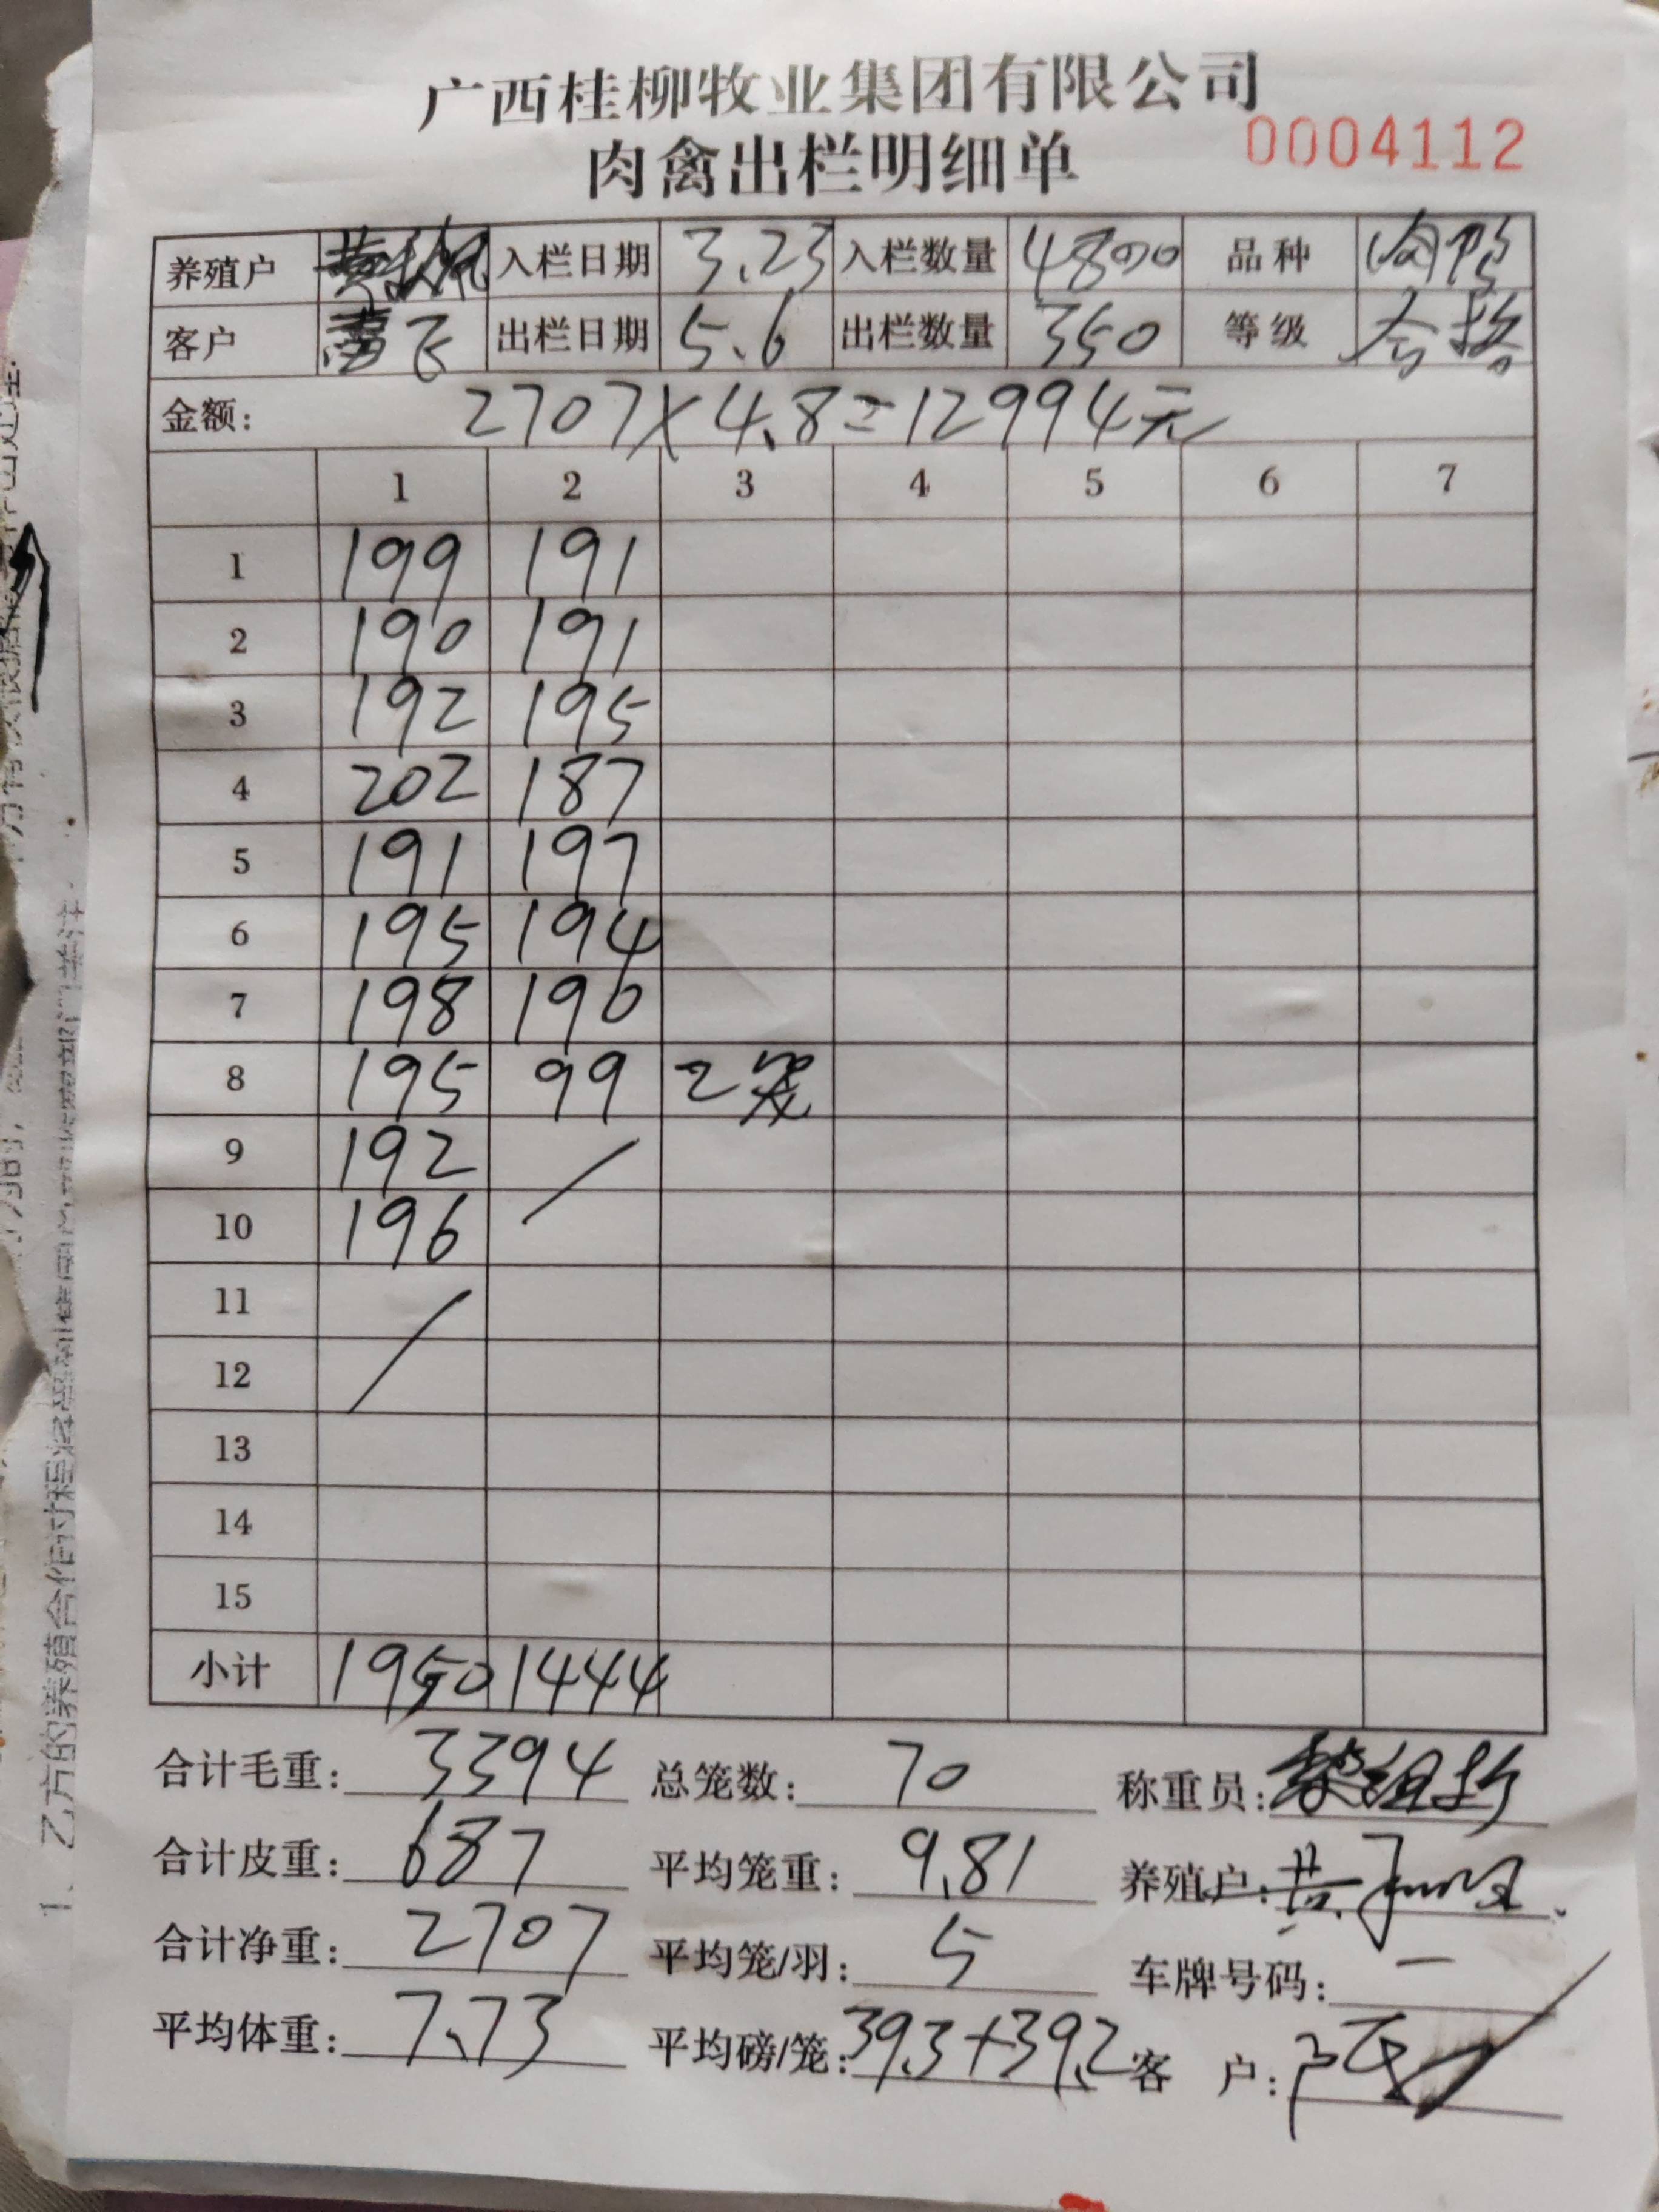 广西桂柳牧业集团有限公司
肉禽出栏明细单
0004112
养殖户 入栏日期 3.23 入栏数量 4800 品种 肉鸭
客户 出栏日期 5.6 出栏数量 350 等级 合格
金额: 2707×4.8=12994元
1 2 3 4 5 6 7
1 199 191
2 190 191
3 192 195
4 202 187
5 191 197
6 195 194
7 198 190
8 195 99 2笼
9 192
10 196
11
12
13
14
15
小计 1950 1444
合计毛重: 3394 总笼数: 70 称重员:
合计皮重: 687 平均笼重: 9.81 养殖户:
合计净重: 2707 平均笼/羽: 5 车牌号码: —
平均体重: 7.73 平均磅/笼: 39.3+39.2 客 户:
1、乙方的养殖合作过程